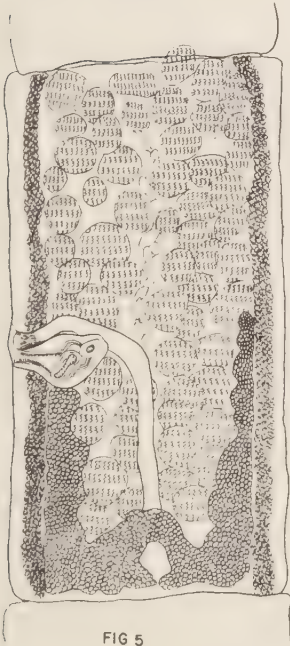 FIG 5